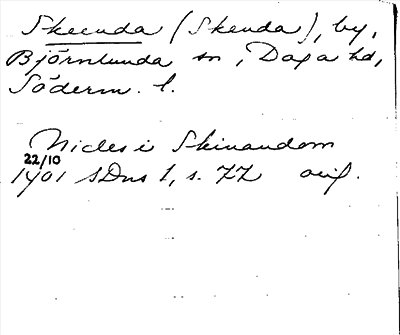 Skeenda (Skenda), by,
Björnlunda sn, Daga hd,
Söderm. l.
Nicles i Skinandom
22/10
1401 SDns 1, s. 77 orig.